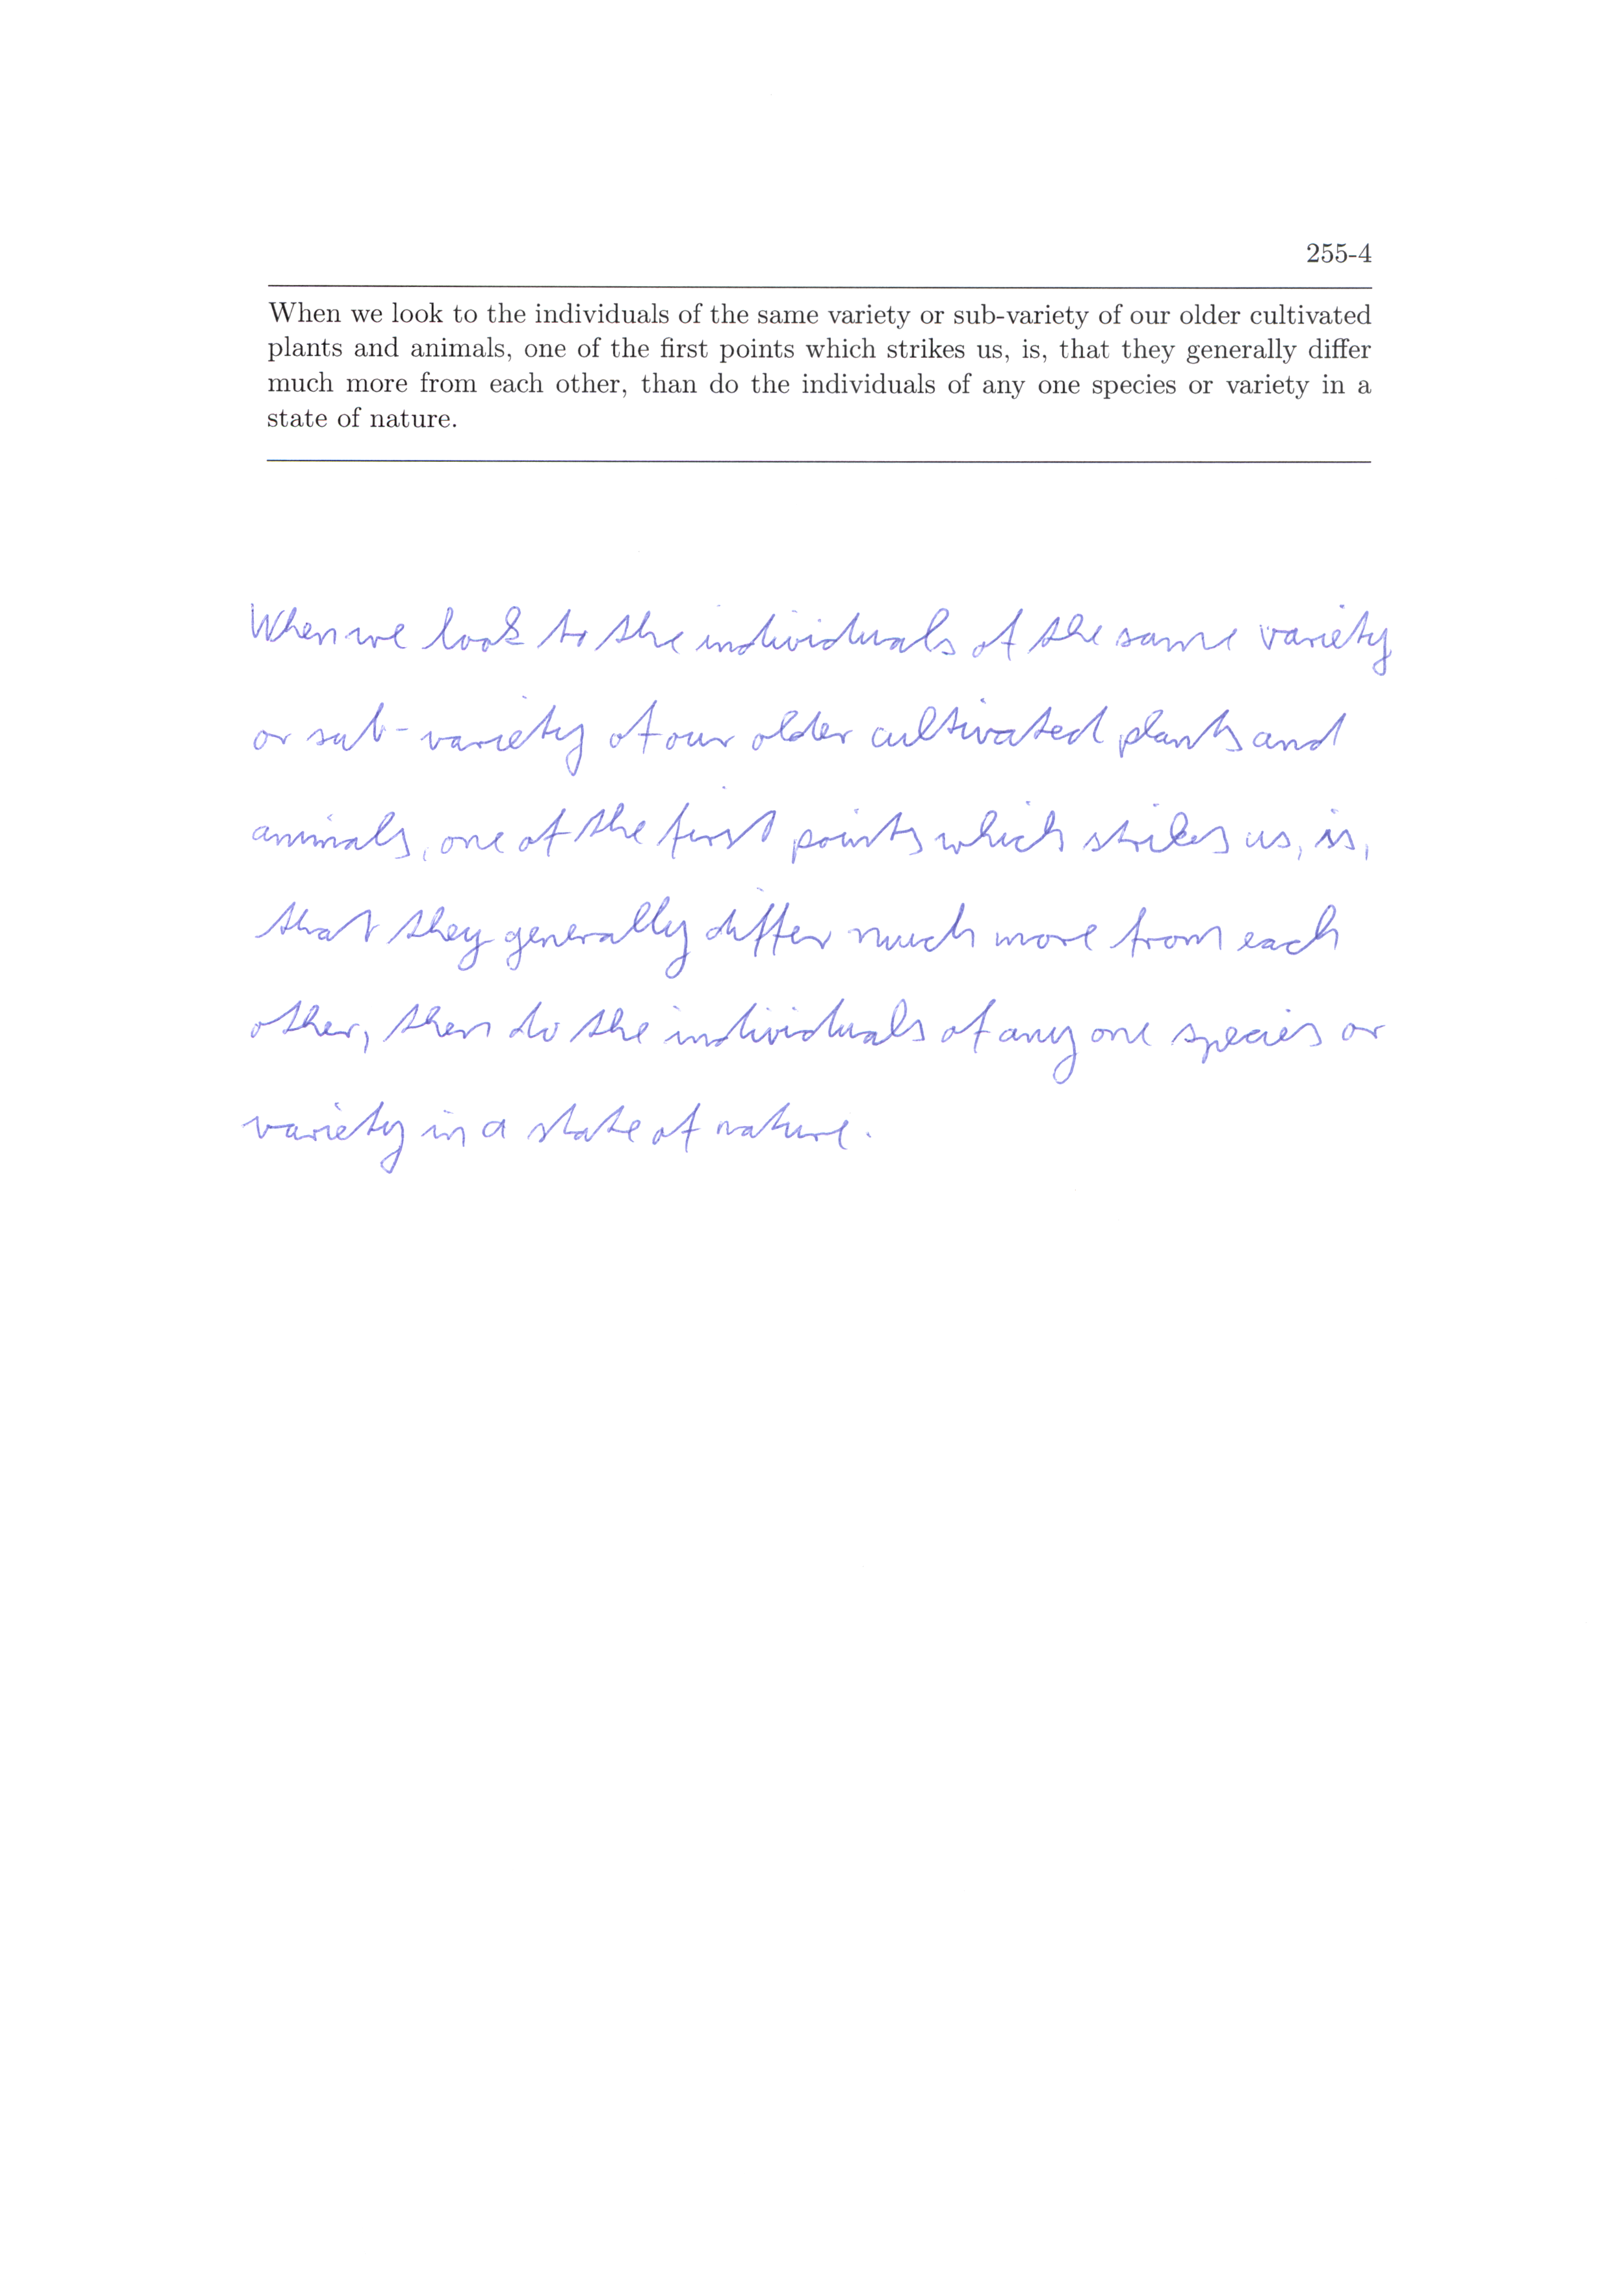 255-4
When we look to the individuals of the same variety or sub-variety of our older cultivated
plants and animals, one of the first points which strikes us, is, that they generally differ
much more from each other, than do the individuals of any one species or variety in a
state of nature.
When we look to the individuals of the same variety
or sub-variety of our older cultivated plants and
animals, one of the first points which strikes us, is,
that they generally differ much more from each
other, then do the individuals of any one species or
variety in a state of nature.